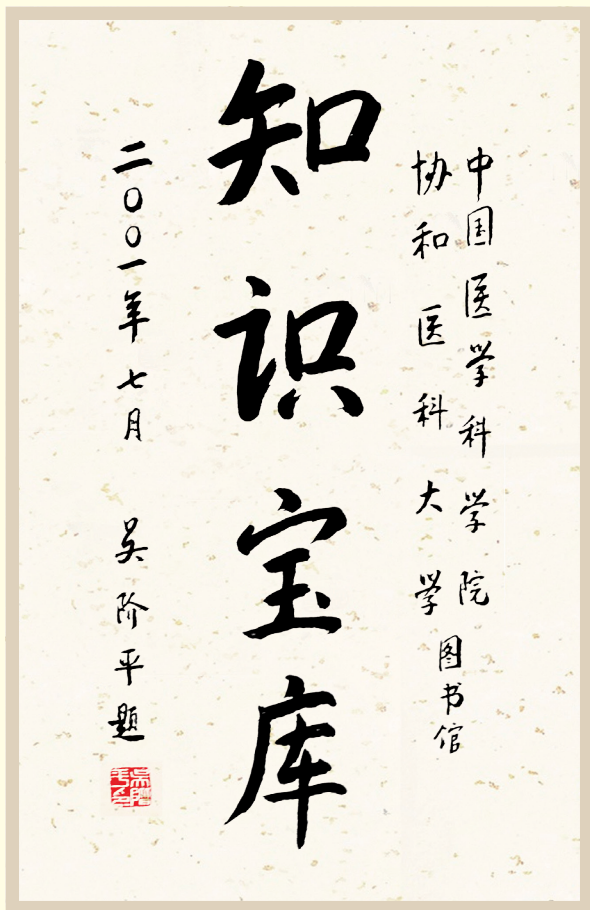 中国医学科学院
协和医科大学
图书馆
知识宝库
二〇〇一年七月 吴阶平题